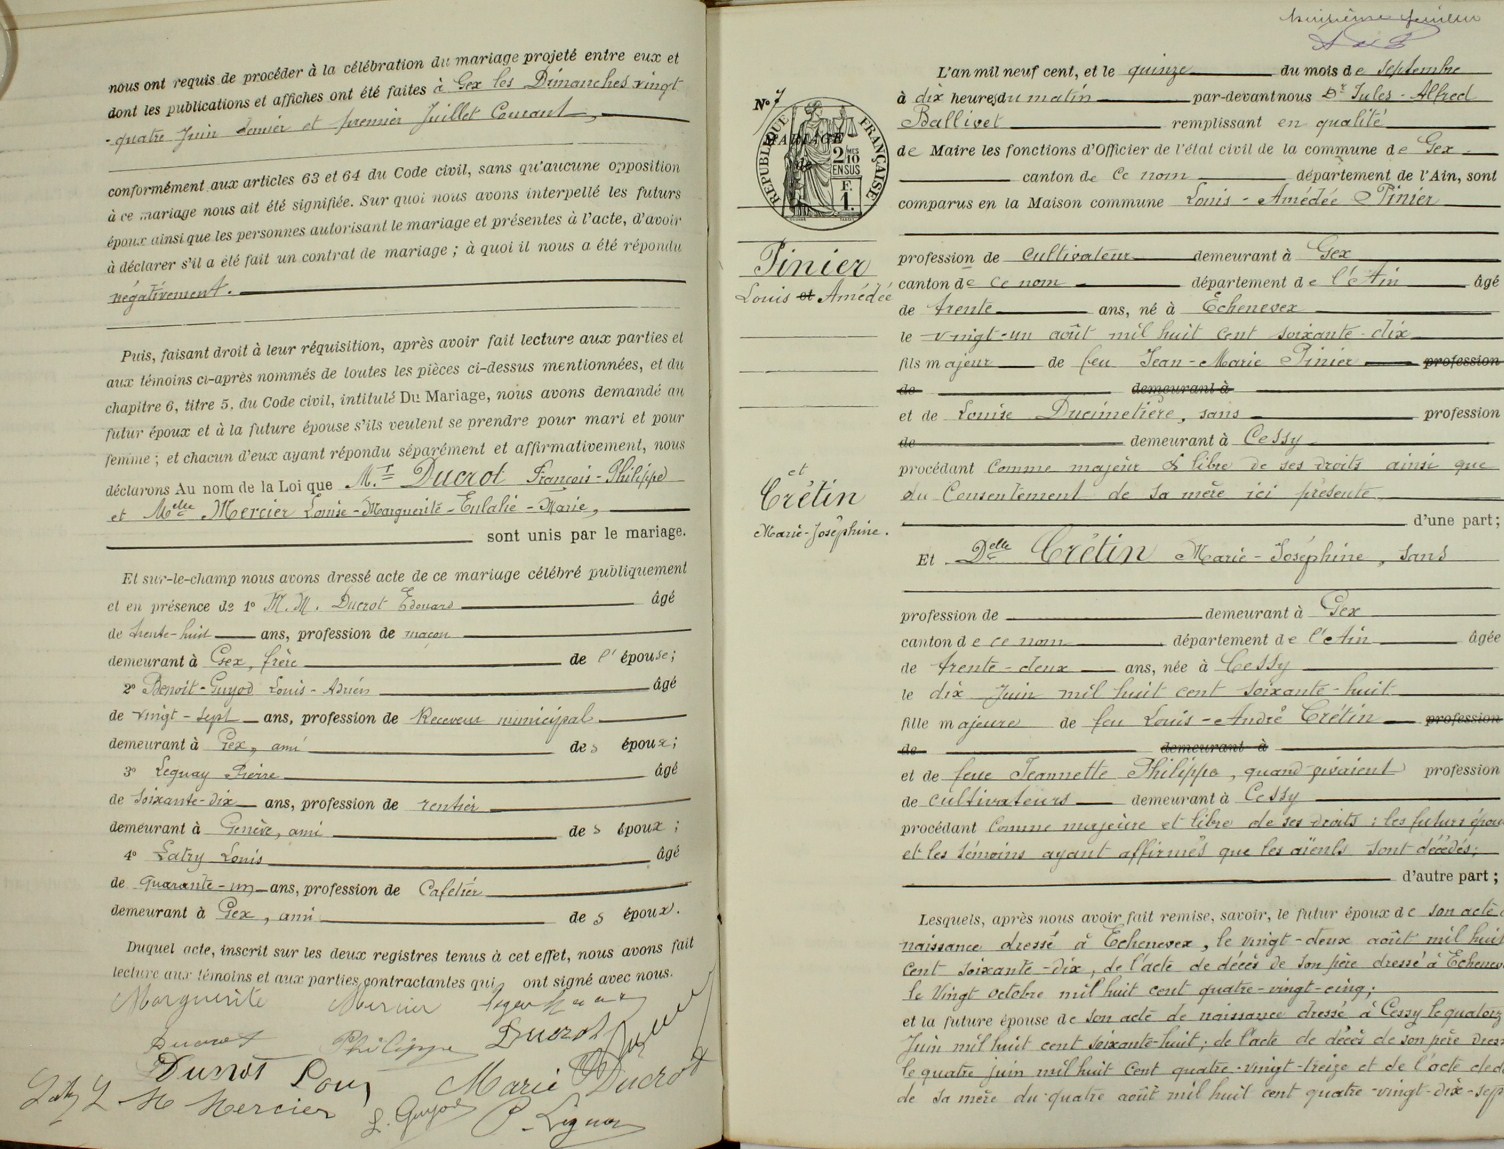 nous ont requis de procéder à la célébration du mariage projeté entre eux et
dont les publications et affiches ont été faites à Gex les Dimanches vingt
-quatre Juin dernier et premier Juillet Courant,
conformément aux articles 63 et 64 du Code civil, sans qu'aucune opposition
à ce mariage nous ait été signifiée. Sur quoi nous avons interpellé les futurs
époux ainsi que les personnes autorisant le mariage et présentes à l'acte, d'avoir
à déclarer s'il a été fait un contrat de mariage ; à quoi il nous a été répondu
négativement.
Puis, faisant droit à leur réquisition, après avoir fait lecture aux parties et
aux témoins ci-après nommés de toutes les pièces ci-dessus mentionnées, et du
chapitre 6, titre 5, du Code civil, intitulé Du Mariage, nous avons demandé au
futur époux et à la future épouse s'ils veulent se prendre pour mari et pour
femme ; et chacun d'eux ayant répondu séparément et affirmativement, nous
déclarons Au nom de la Loi que M.r Ducrot François-Philippe
et Melle Mercier Louise-Marguerite-Eulalie-Marie,
sont unis par le mariage.
Et sur-le-champ nous avons dressé acte de ce mariage célébré publiquement
et en présence de 1° M.M. Ducrot Edouard âgé
de trente-huit ans, profession de maçon
demeurant à Gex, frère de l'épouse;
2° Benoit-Guyod Louis- âgé
de vingt-sept ans, profession de Receveur municipal
demeurant à Gex, ami des époux;
3° Leguay Pierre âgé
de soixante-dix ans, profession de rentier
demeurant à Genève, ami des époux;
4° Latry Louis âgé
de quarante-un ans, profession de Cafetier
demeurant à Gex, ami des époux.
Duquel acte, inscrit sur les deux registres tenus à cet effet, nous avons fait
lecture aux témoins et aux parties contractantes qui ont signé avec nous.
Marguerite Mercier
Ducrot Philippe Ducrot
Ducrot Marie Ducrot
M Mercier L. Guyod
N° 7
MARIAGE
de
RÉPUBLIQUE FRANÇAISE
2 MES
10
EN SUS
F.
1.
Pinier
Louis et Amédée
et
Crétin
Marie-Joséphine.
L'an mil neuf cent, et le quinze du mois de septembre
à dix heures du matin par-devant nous Dr Jules-Alfred
Ballivet remplissant en qualité
de Maire les fonctions d'Officier de l'état civil de la commune de Gex
canton de ce nom département de l'Ain, sont
comparus en la Maison commune Louis-Amédée Pinier
profession de cultivateur demeurant à Gex
canton de ce nom département de l'Ain âgé
de trente ans, né à Echenevex
le vingt-un août mil huit cent soixante-dix
fils majeur de feu Jean-Marie Pinier profession
de demeurant à
et de Louise Ducimetière, sans profession
de demeurant à Cessy
procédant comme majeur & libre de ses droits ainsi que
du Consentement de sa mère ici présente
d'une part;
Et Delle Crétin Marie-Joséphine, sans
profession de demeurant à Gex
canton de ce nom département de l'Ain âgée
de trente-deux ans, née à Cessy
le dix Juin mil huit cent soixante-huit
fille majeure de feu Louis-André Crétin profession
de demeurant à
et de feue Jeannette Philippe, quand vivaient profession
de cultivateurs demeurant à Cessy
procédant comme majeure et libre de ses droits: les futurs époux
et les témoins ayant affirmés que les aïeuls sont décédés;
d'autre part;
Lesquels, après nous avoir fait remise, savoir, le futur époux de son acte
naissance dressé à Echenevex, le vingt-deux août mil huit
cent soixante-dix, de l'acte de décès de son père dressé à Echenev
le vingt octobre mil huit cent quatre-vingt-cinq;
et la future épouse de son acte de naissance dressé à Cessy le quatorz
Juin mil huit cent soixante-huit; de l'acte de décès de son père dres
le quatre juin mil huit cent quatre-vingt-treize et de l'acte de d
de sa mère du quatre août mil huit cent quatre-vingt-dix-sept